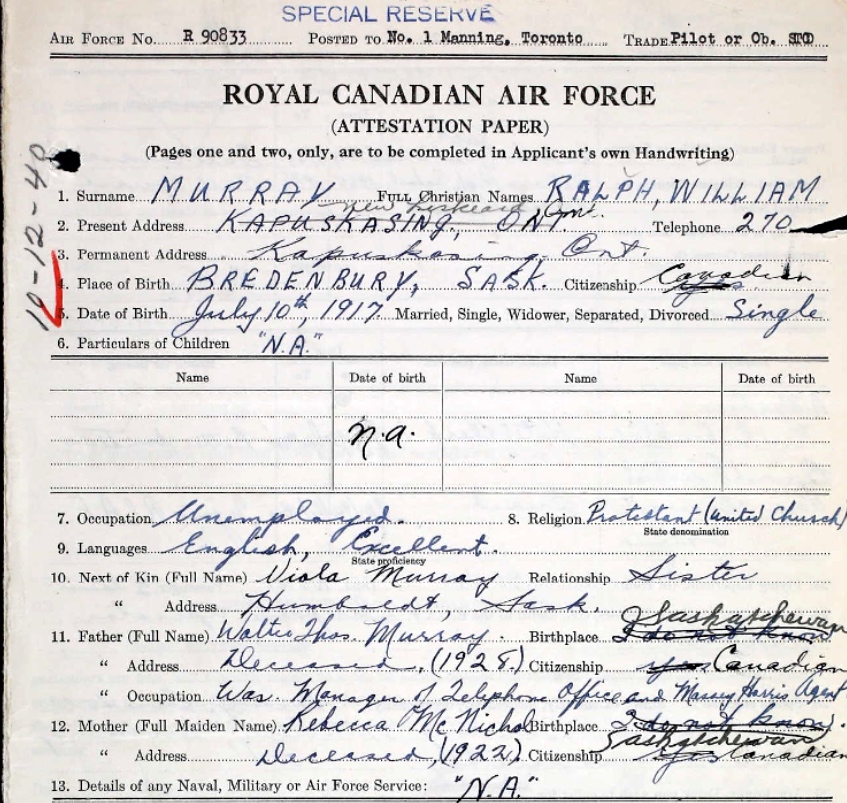 SPECIAL RESERVE
AIR FORCE No. R 90833 POSTED TO No. 1 Manning, Toronto TRADE Pilot or Ob. STD
ROYAL CANADIAN AIR FORCE
(ATTESTATION PAPER)
(Pages one and two, only, are to be completed in Applicant's own Handwriting)
10-12-40
1. Surname MURRAY Full Christian Names RALPH, WILLIAM
New Liskeard Ont.
2. Present Address KAPUSKASING, ONT. Telephone 270
3. Permanent Address Kapuskasing, Ont.
4. Place of Birth BREDENBURY, SASK. Citizenship yes Canadian
5. Date of Birth July 10th, 1917. Married, Single, Widower, Separated, Divorced Single
6. Particulars of Children "N.A."
Name Date of birth Name Date of birth
n.a.
7. Occupation Unemployed. 8. Religion Protestant (United Church)
State denomination
9. Languages English, Excellent.
State proficiency
10. Next of Kin (Full Name) Viola Murray Relationship Sister
" Address Humboldt, Sask.
Saskatchewan
11. Father (Full Name) Walter Thos. Murray. Birthplace I do not know
" Address Deceased, (1928.) Citizenship yes Canadian
" Occupation Was Manager of Telephone Office and Massey Harris Agent
12. Mother (Full Maiden Name) Rebecca McNichol Birthplace I do not know.
Saskatchewan
" Address Deceased, (1922) Citizenship yes Canadian
13. Details of any Naval, Military or Air Force Service: "N.A."